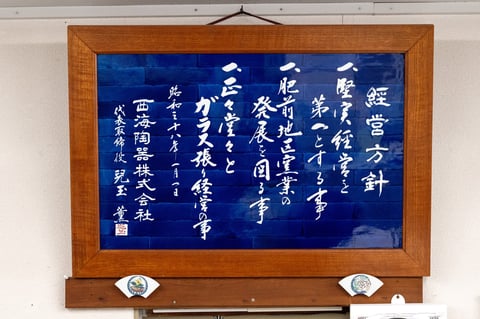 経営方針
一、堅実経営を
第一とする事
一、肥前地区窯業の
発展を図る事
一、正々堂々と
ガラス張り経営の事
昭和三十八年一月一日
西海陶器株式会社
代表取締役 児玉薫